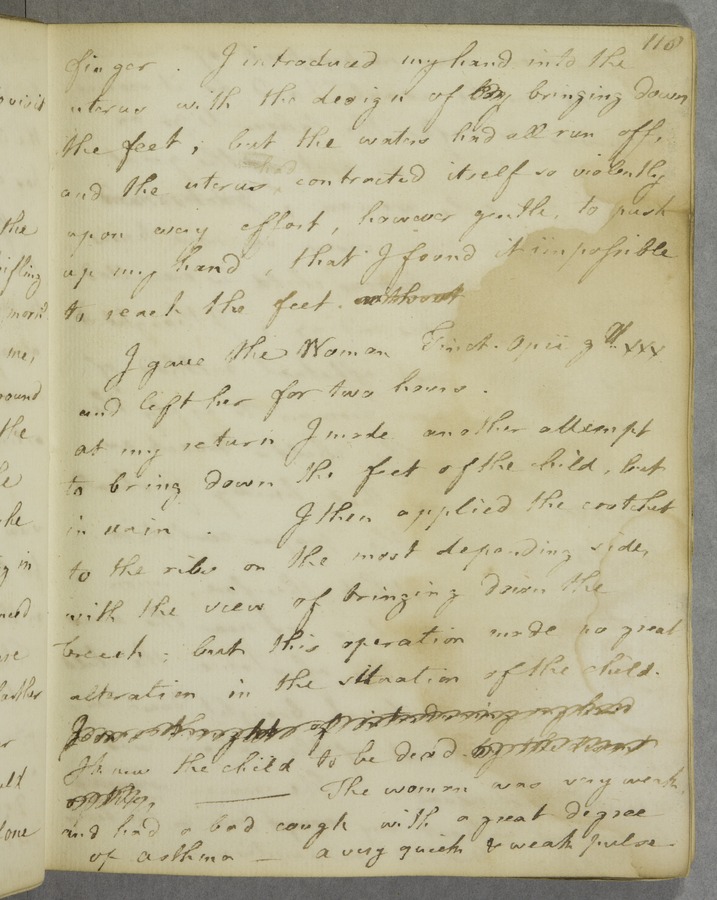 118
finger. I introduced my hand into the
uterus with the design of bringing down
the feet; but the waters had all run off,
and the uterus contracted itself so violently
upon every effort, however gentle, to push
up my hand, that I found it impossible
to reach the feet. without
I gave the Woman Tinct. Opii gtt xxx
and left her for two hours.
at my return I made another attempt
to bring down the feet of the child, but
in vain. I then applied the crotchet
to the ribs on the most depending side,
with the view of bringing down the
breech; but this operation made no great
alteration in the situation of the child.
I knew the child to be dead.
The woman was very weak
and had a bad cough with a great degree
of asthma — a very quick & weak pulse
ovisit
the
me,
ound
the
he
g in
one